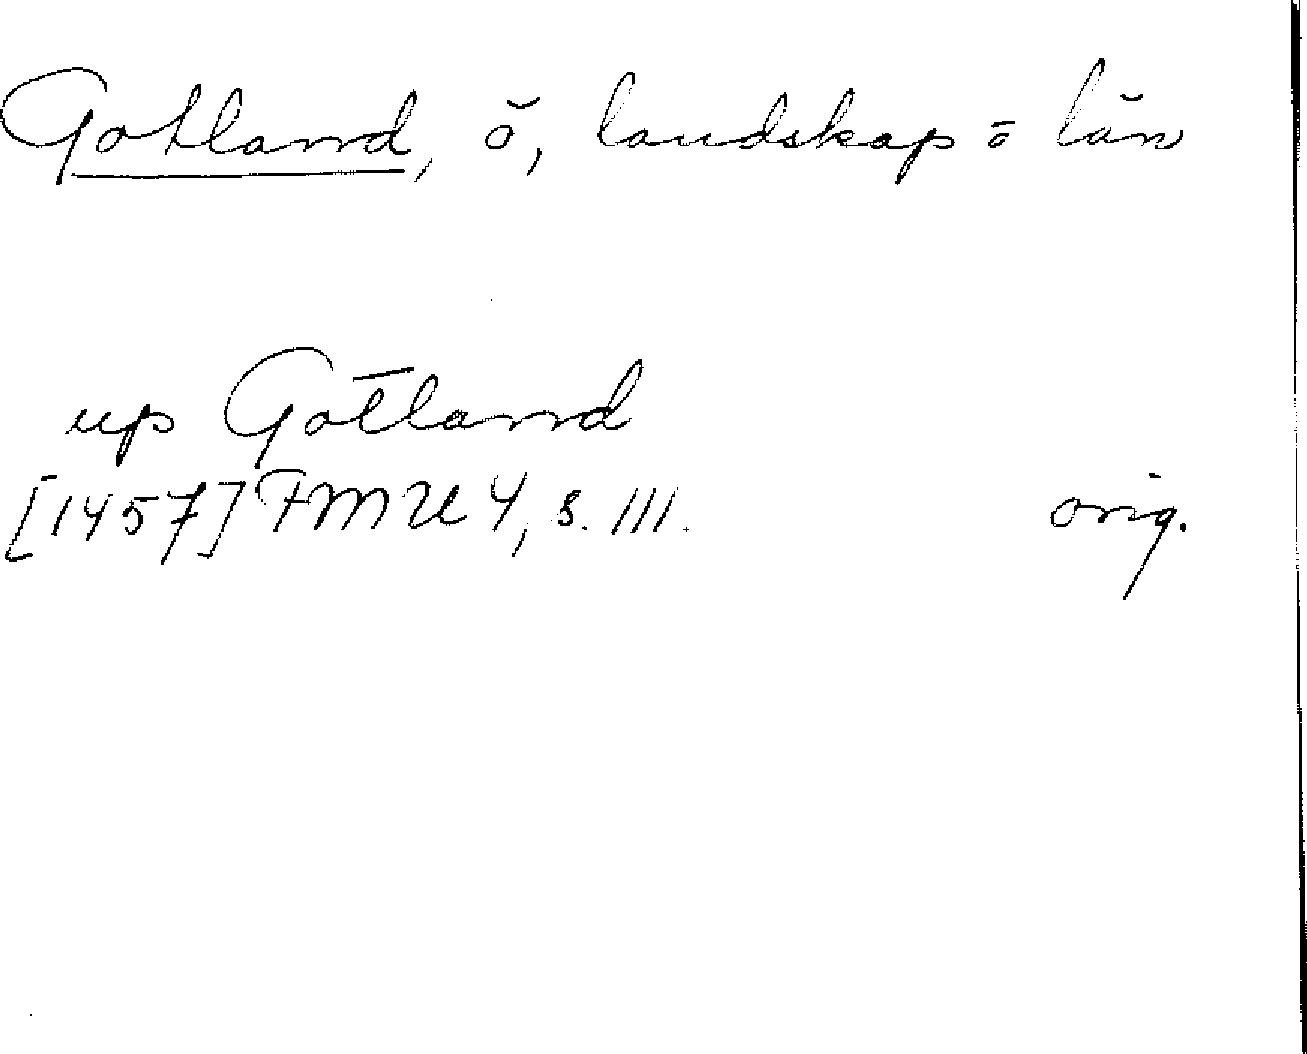 Gotland, ö, landskap o län
up Gotland
[1457] FMU 4, s. 111.
orig.